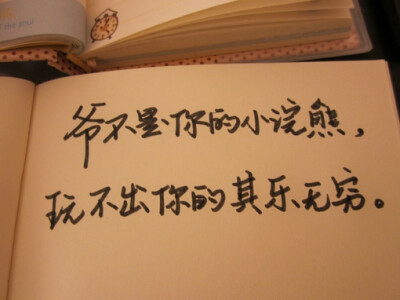 爷不是你的小浣熊，
玩不出你的其乐无穷。